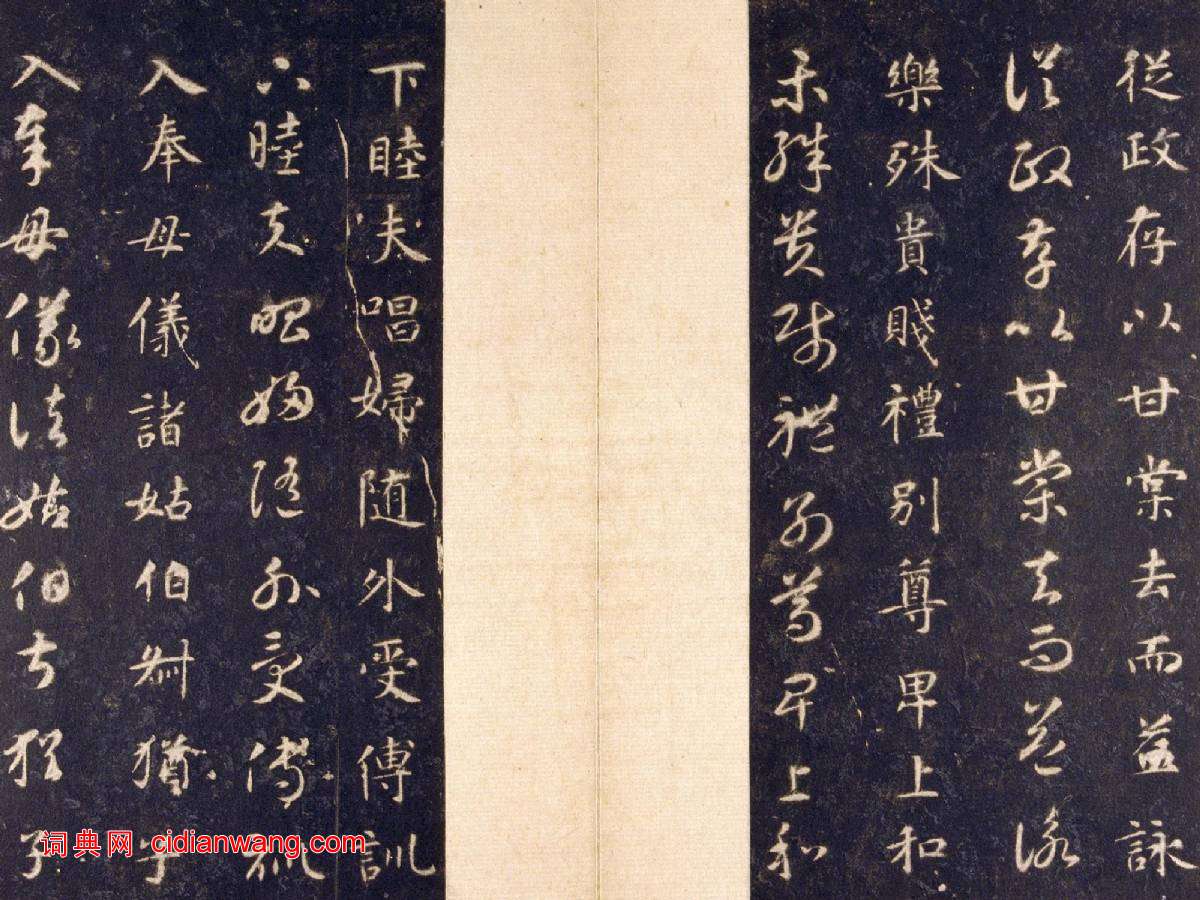 從政存以甘棠去而益詠
從政存以甘棠去而益詠
樂殊貴賤禮別尊卑上和
樂殊貴賤禮別尊卑上和
下睦夫唱婦随外受傅訓
下睦夫唱婦随外受傅訓
入奉母儀諸姑伯叔猶子
入奉母儀諸姑伯叔猶子
词典网 cidianwang.com